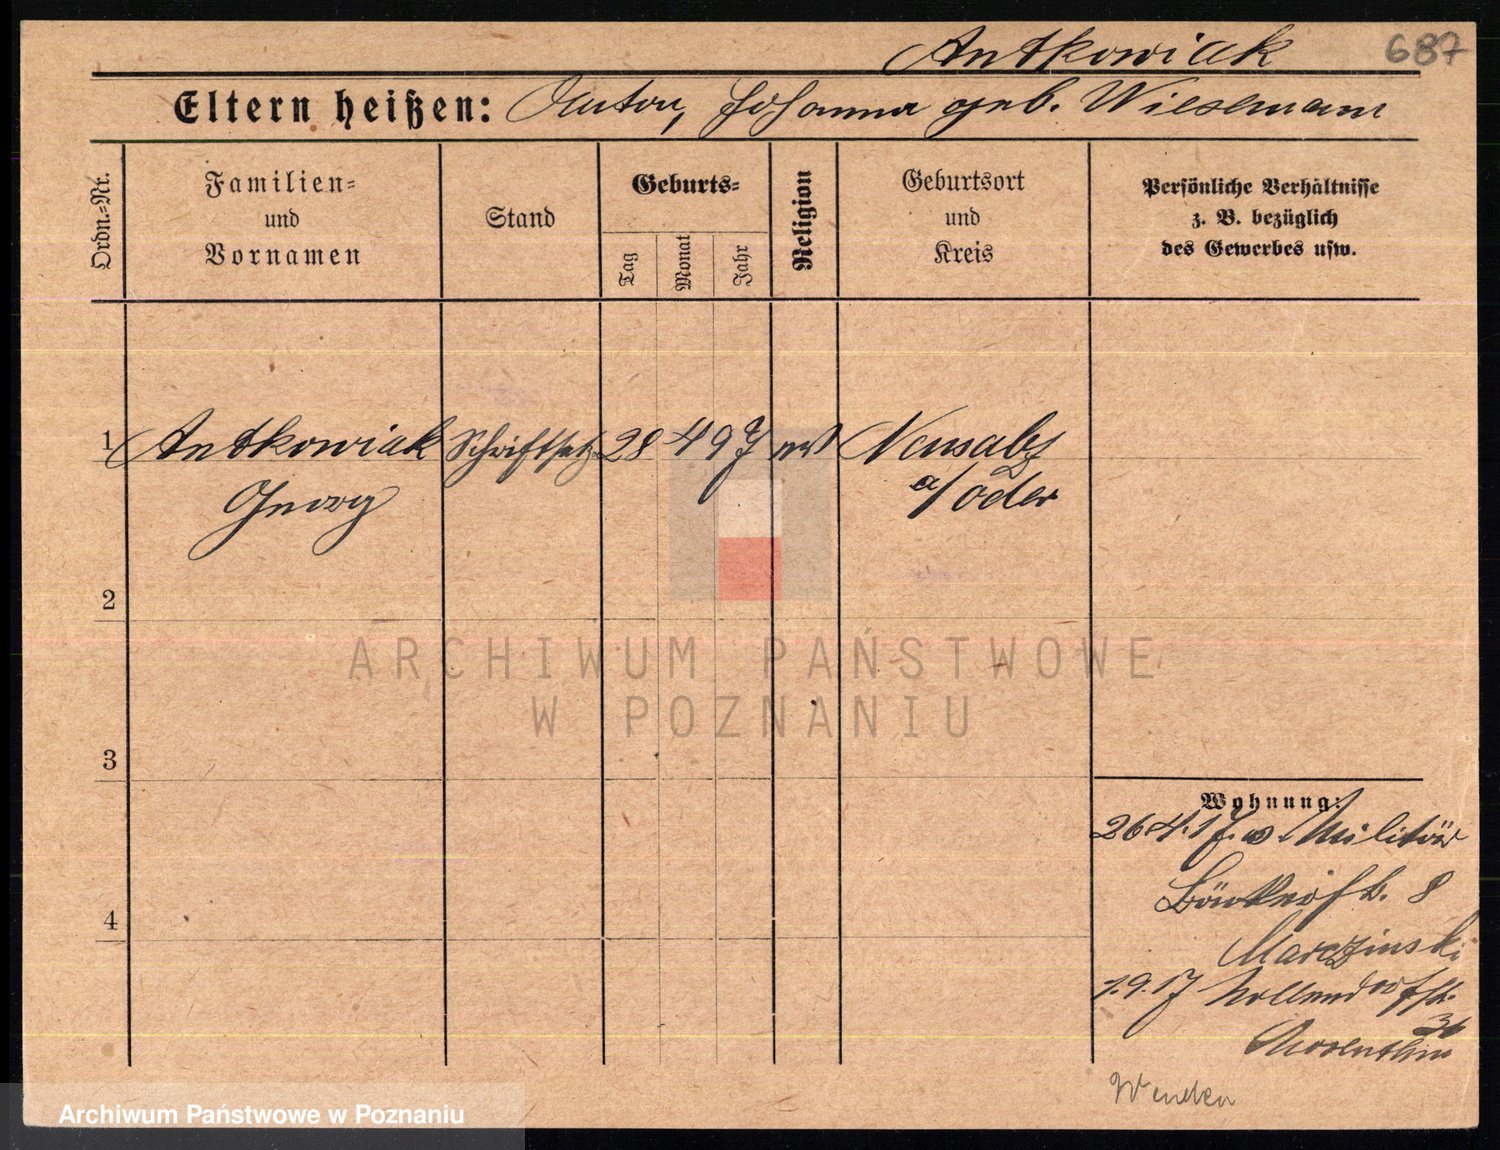 Antkowiak 687
Eltern heißen: Anton, Johanna geb. Wiesemann
Ordn.-Nr.
Familien- und Vornamen
Stand
Geburts-
Tag
Monat
Jahr
Religion
Geburtsort und Kreis
Persönliche Verhältnisse z. B. bezüglich des Gewerbes usw.
1 Antkowiak Schriftsetz. 28 4 97 Neusalz
Georg a/Oder
2
3
4
Wohnung:
26.4.17. v. Militär
8
Marczinski
1.9.17 Nollendorfstr.
36
Wenden
ARCHIWUM PAŃSTWOWE
W POZNANIU
Archiwum Państwowe w Poznaniu